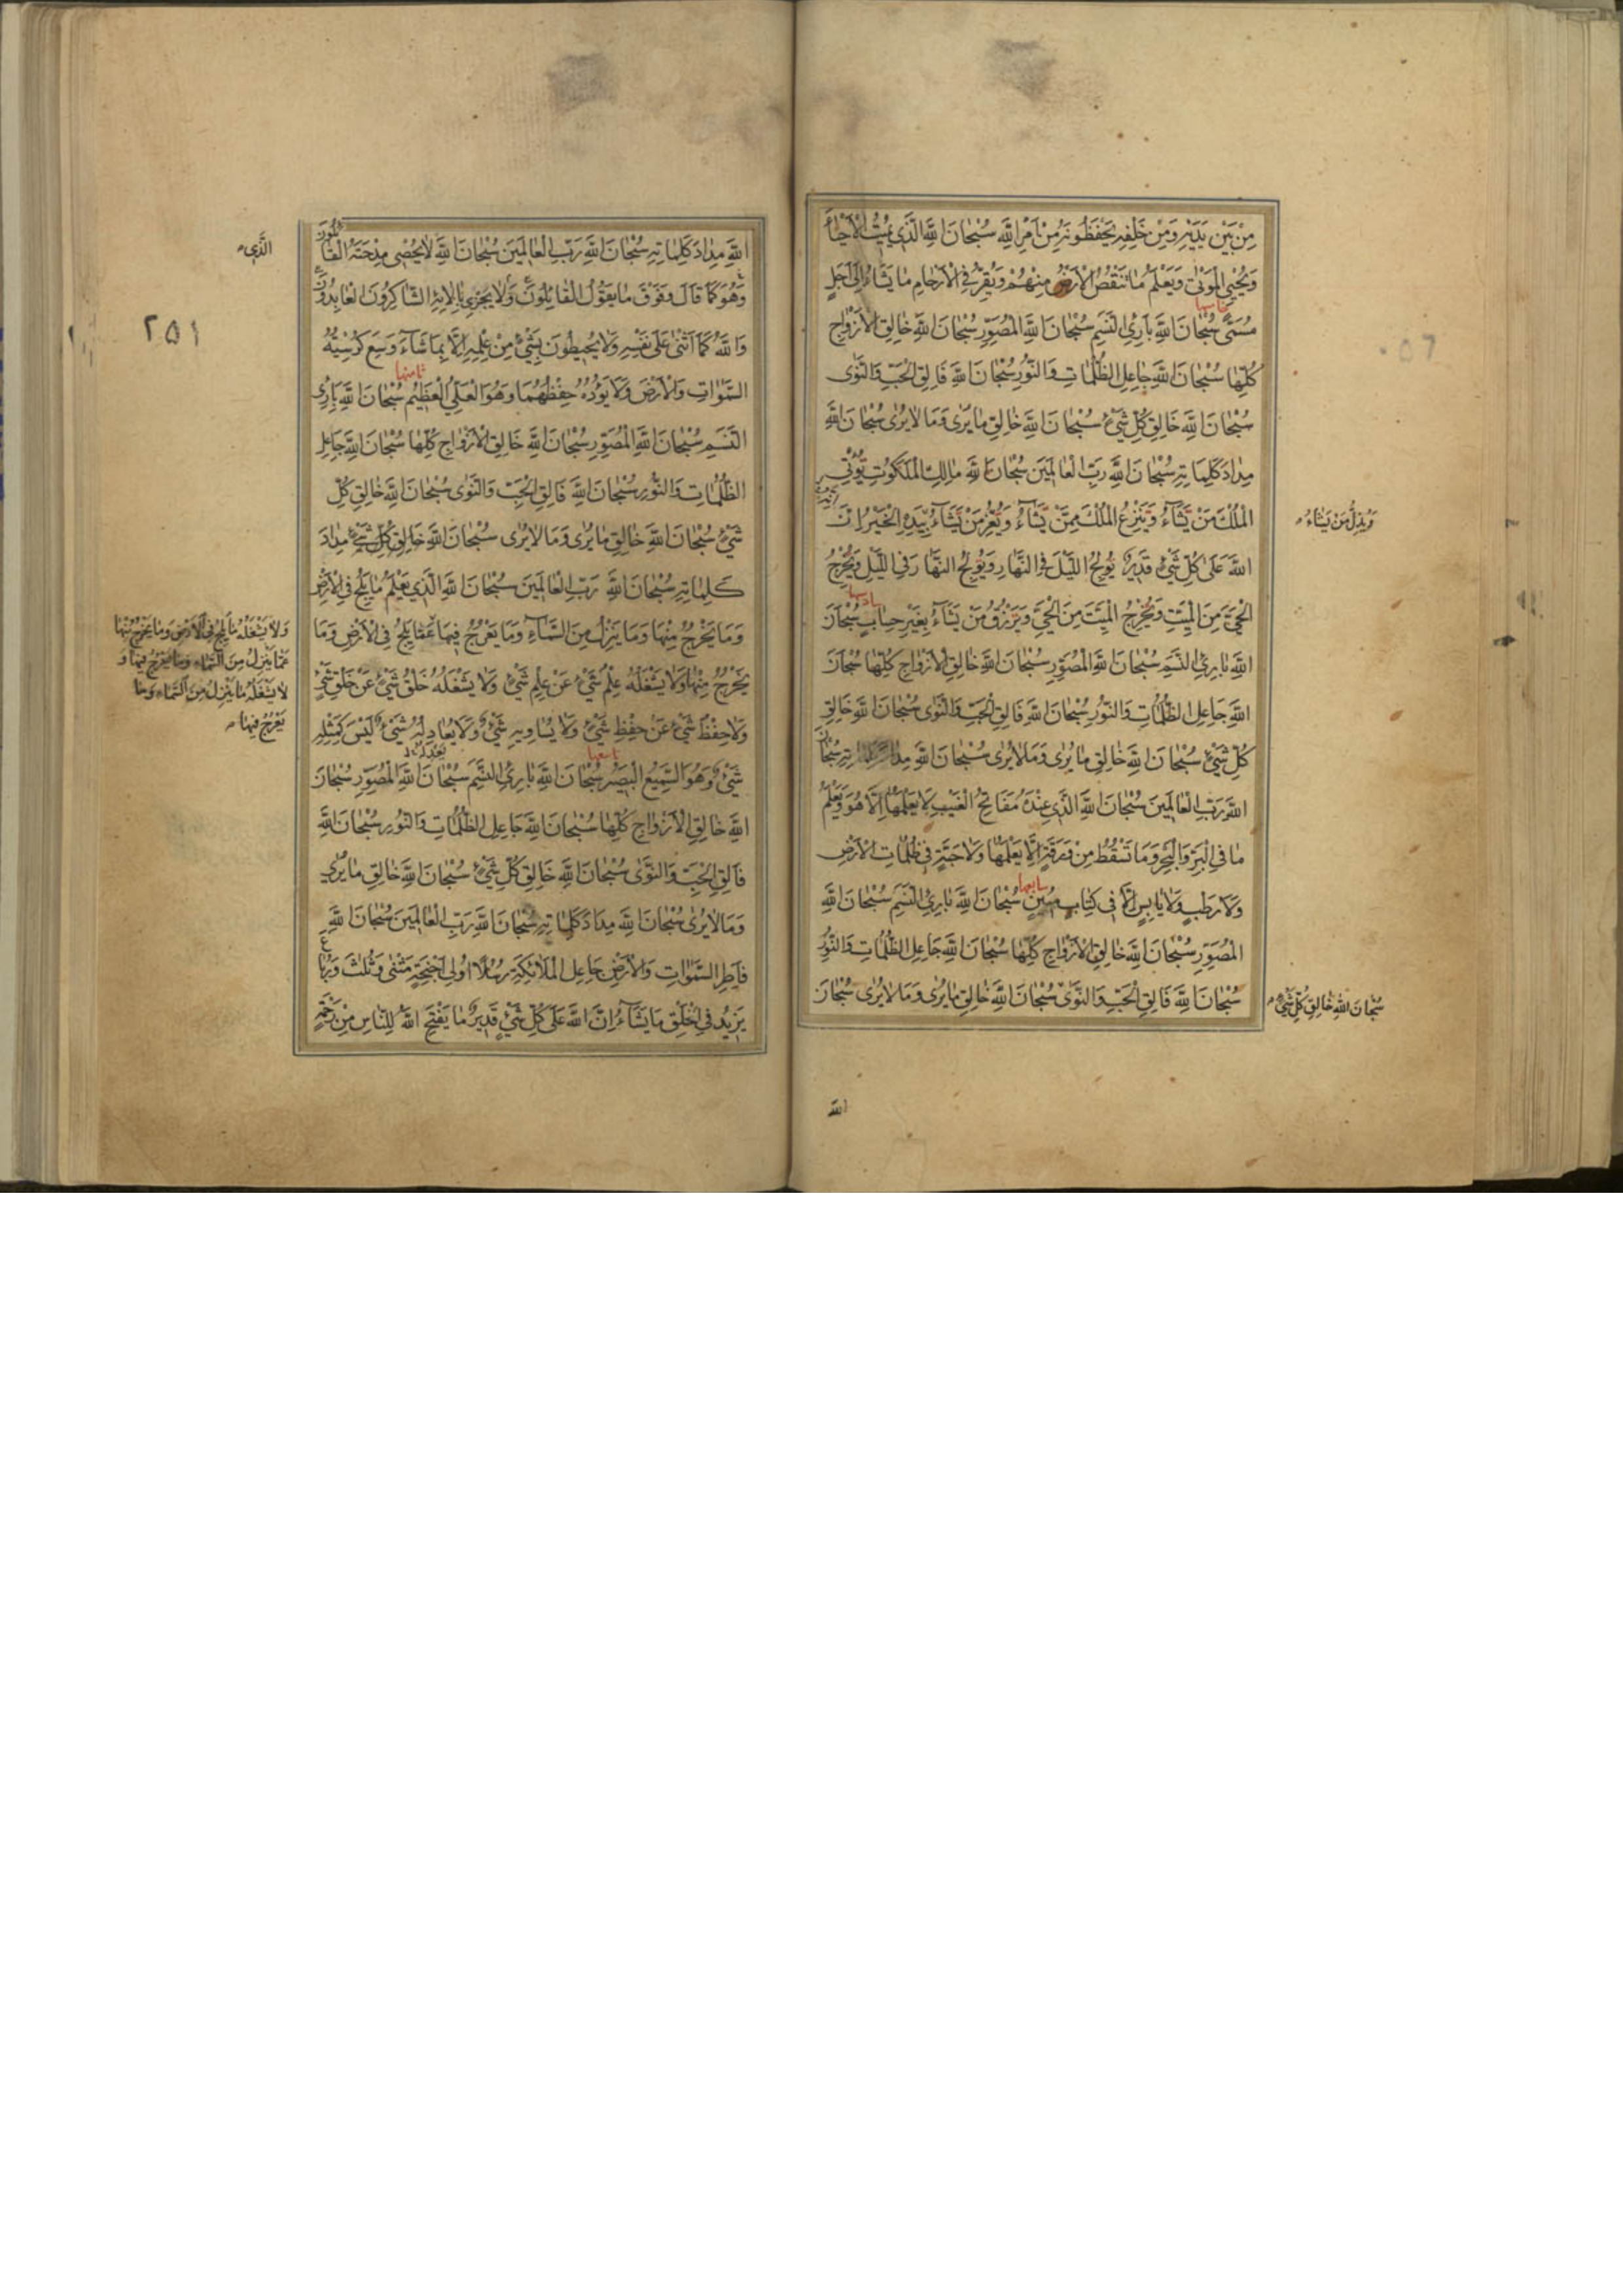 مِنْ بَيْنِ يَدَيْهِ وَمِنْ خَلْفِهِ يَحْفَظُونَهُ مِنْ اَمْرِ اللهِ سُبْحَانَ اللهِ الَّذِي يُمِيتُ الْاَحْيَاءَ
وَيُحْيِي الْمَوْتَى وَيَعْلَمُ مَا تَنْقُصُ الْاَرْضُ مِنْهُمْ وَيُقِرُّ فِي الْاَرْحَامِ مَا يَشَاءُ اِلَى اَجَلٍ
خامسها
مُسَمًّى سُبْحَانَ اللهِ بَارِئِ النَّسَمِ سُبْحَانَ اللهِ الْمُصَوِّرِ سُبْحَانَ اللهِ خَالِقِ الْاَزْوَاجِ
كُلِّهَا سُبْحَانَ اللهِ جَاعِلِ الظُّلُمَاتِ وَالنُّورِ سُبْحَانَ اللهِ فَالِقِ الْحَبِّ وَالنَّوَى
سُبْحَانَ اللهِ خَالِقِ كُلِّ شَيْءٍ سُبْحَانَ اللهِ خَالِقِ مَا يُرَى وَمَا لَا يُرَى سُبْحَانَ اللهِ
مِدَادَ كَلِمَاتِهِ سُبْحَانَ اللهِ رَبِّ الْعَالَمِينَ سُبْحَانَ اللهِ مَالِكِ الْمَلَكُوتِ يُؤْتِي
الْمُلْكَ مَنْ يَشَاءُ وَيَنْزِعُ الْمُلْكَ مِمَّنْ يَشَاءُ وَيُعِزُّ مَنْ يَشَاءُ بِيَدِهِ الْخَيْرُ اِنَّ
وَيُذِلُّ مَنْ يَشَاءُ
اللهَ عَلَى كُلِّ شَيْءٍ قَدِيرٌ يُولِجُ اللَّيْلَ فِي النَّهَارِ وَيُولِجُ النَّهَارَ فِي اللَّيْلِ وَيُخْرِجُ
سادسها
الْحَيَّ مِنَ الْمَيِّتِ وَيُخْرِجُ الْمَيِّتَ مِنَ الْحَيِّ وَيَرْزُقُ مَنْ يَشَاءُ بِغَيْرِ حِسَابٍ سُبْحَانَ
اللهِ بَارِئِ النَّسَمِ سُبْحَانَ اللهِ الْمُصَوِّرِ سُبْحَانَ اللهِ خَالِقِ الْاَزْوَاجِ كُلِّهَا سُبْحَانَ
اللهِ جَاعِلِ الظُّلُمَاتِ وَالنُّورِ سُبْحَانَ اللهِ فَالِقِ الْحَبِّ وَالنَّوَى سُبْحَانَ اللهِ خَالِقِ
كُلِّ شَيْءٍ سُبْحَانَ اللهِ خَالِقِ مَا يُرَى وَمَا لَا يُرَى سُبْحَانَ اللهِ مِدَادَ كَلِمَاتِهِ سُبْحَانَ
اللهِ رَبِّ الْعَالَمِينَ سُبْحَانَ اللهِ الَّذِي عِنْدَهُ مَفَاتِحُ الْغَيْبِ لَا يَعْلَمُهَا اِلَّا هُوَ وَيَعْلَمُ
مَا فِي الْبَرِّ وَالْبَحْرِ وَمَا تَسْقُطُ مِنْ وَرَقَةٍ اِلَّا يَعْلَمُهَا وَلَا حَبَّةٍ فِي ظُلُمَاتِ الْاَرْضِ
سابعها
وَلَا رَطْبٍ وَلَا يَابِسٍ اِلَّا فِي كِتَابٍ مُبِينٍ سُبْحَانَ اللهِ بَارِئِ النَّسَمِ سُبْحَانَ اللهِ
الْمُصَوِّرِ سُبْحَانَ اللهِ خَالِقِ الْاَزْوَاجِ كُلِّهَا سُبْحَانَ اللهِ جَاعِلِ الظُّلُمَاتِ وَالنُّورِ
سُبْحَانَ اللهِ فَالِقِ الْحَبِّ وَالنَّوَى سُبْحَانَ اللهِ خَالِقِ مَا يُرَى وَمَا لَا يُرَى سُبْحَانَ
سُبْحَانَ اللهِ خَالِقِ كُلِّ شَيْءٍ
الله
اللهِ مِدَادَ كَلِمَاتِهِ سُبْحَانَ اللهِ رَبِّ الْعَالَمِينَ سُبْحَانَ اللهِ لَا يُحْصِي مِدْحَتَهُ الْقَائِلُونَ
الَّذِي
وَهُوَ كَمَا قَالَ وَفَوْقَ مَا يَقُولُ الْقَائِلُونَ وَلَا يَجْزِي بِآلَائِهِ الشَّاكِرُونَ الْعَابِدُونَ
وَاللهُ كَمَا اَثْنَى عَلَى نَفْسِهِ وَلَا يُحِيطُونَ بِشَيْءٍ مِنْ عِلْمِهِ اِلَّا بِمَا شَاءَ وَسِعَ كُرْسِيُّهُ
٢٥١
ثامنها
السَّمٰوَاتِ وَالْاَرْضَ وَلَا يَؤُدُهُ حِفْظُهُمَا وَهُوَ الْعَلِيُّ الْعَظِيمُ سُبْحَانَ اللهِ بَارِئِ
النَّسَمِ سُبْحَانَ اللهِ الْمُصَوِّرِ سُبْحَانَ اللهِ خَالِقِ الْاَزْوَاجِ كُلِّهَا سُبْحَانَ اللهِ جَاعِلِ
الظُّلُمَاتِ وَالنُّورِ سُبْحَانَ اللهِ فَالِقِ الْحَبِّ وَالنَّوَى سُبْحَانَ اللهِ خَالِقِ كُلِّ
شَيْءٍ سُبْحَانَ اللهِ خَالِقِ مَا يُرَى وَمَا لَا يُرَى سُبْحَانَ اللهِ خَالِقِ كُلِّ شَيْءٍ مِدَادَ
كَلِمَاتِهِ سُبْحَانَ اللهِ رَبِّ الْعَالَمِينَ سُبْحَانَ اللهِ الَّذِي يَعْلَمُ مَا يَلِجُ فِي الْاَرْضِ
وَمَا يَخْرُجُ مِنْهَا وَمَا يَنْزِلُ مِنَ السَّمَاءِ وَمَا يَعْرُجُ فِيهَا عَمَّا يَلِجُ فِي الْاَرْضِ وَمَا
وَلَا يَشْغَلُهُ مَا يَلِجُ فِي الْاَرْضِ وَمَا يَخْرُجُ مِنْهَا
عَمَّا يَنْزِلُ مِنَ السَّمَاءِ وَمَا يَعْرُجُ فِيهَا وَ
لَا يَشْغَلُهُ مَا يَنْزِلُ مِنَ السَّمَاءِ وَمَا
يَعْرُجُ فِيهَا
يَخْرُجُ مِنْهَا وَلَا يَشْغَلُهُ عِلْمُ شَيْءٍ عَنْ عِلْمِ شَيْءٍ وَلَا يَشْغَلُهُ خَلْقُ شَيْءٍ عَنْ خَلْقِ شَيْءٍ
وَلَا حِفْظُ شَيْءٍ عَنْ حِفْظِ شَيْءٍ وَلَا يُسَاوِيهِ شَيْءٌ وَلَا يُعَادِلُهُ شَيْءٌ لَيْسَ كَمِثْلِهِ
تاسعها
شَيْءٌ وَهُوَ السَّمِيعُ الْبَصِيرُ سُبْحَانَ اللهِ بَارِئِ النَّسَمِ سُبْحَانَ اللهِ الْمُصَوِّرِ سُبْحَانَ
اللهِ خَالِقِ الْاَزْوَاجِ كُلِّهَا سُبْحَانَ اللهِ جَاعِلِ الظُّلُمَاتِ وَالنُّورِ سُبْحَانَ اللهِ
فَالِقِ الْحَبِّ وَالنَّوَى سُبْحَانَ اللهِ خَالِقِ كُلِّ شَيْءٍ سُبْحَانَ اللهِ خَالِقِ مَا يُرَى
وَمَا لَا يُرَى سُبْحَانَ اللهِ مِدَادَ كَلِمَاتِهِ سُبْحَانَ اللهِ رَبِّ الْعَالَمِينَ سُبْحَانَ اللهِ
فَاطِرِ السَّمٰوَاتِ وَالْاَرْضِ جَاعِلِ الْمَلَائِكَةِ رُسُلًا اُولِي اَجْنِحَةٍ مَثْنَى وَثُلٰثَ وَرُبَاعَ
يَزِيدُ فِي الْخَلْقِ مَا يَشَاءُ اِنَّ اللهَ عَلَى كُلِّ شَيْءٍ قَدِيرٌ مَا يَفْتَحِ اللهُ لِلنَّاسِ مِنْ رَحْمَةٍ